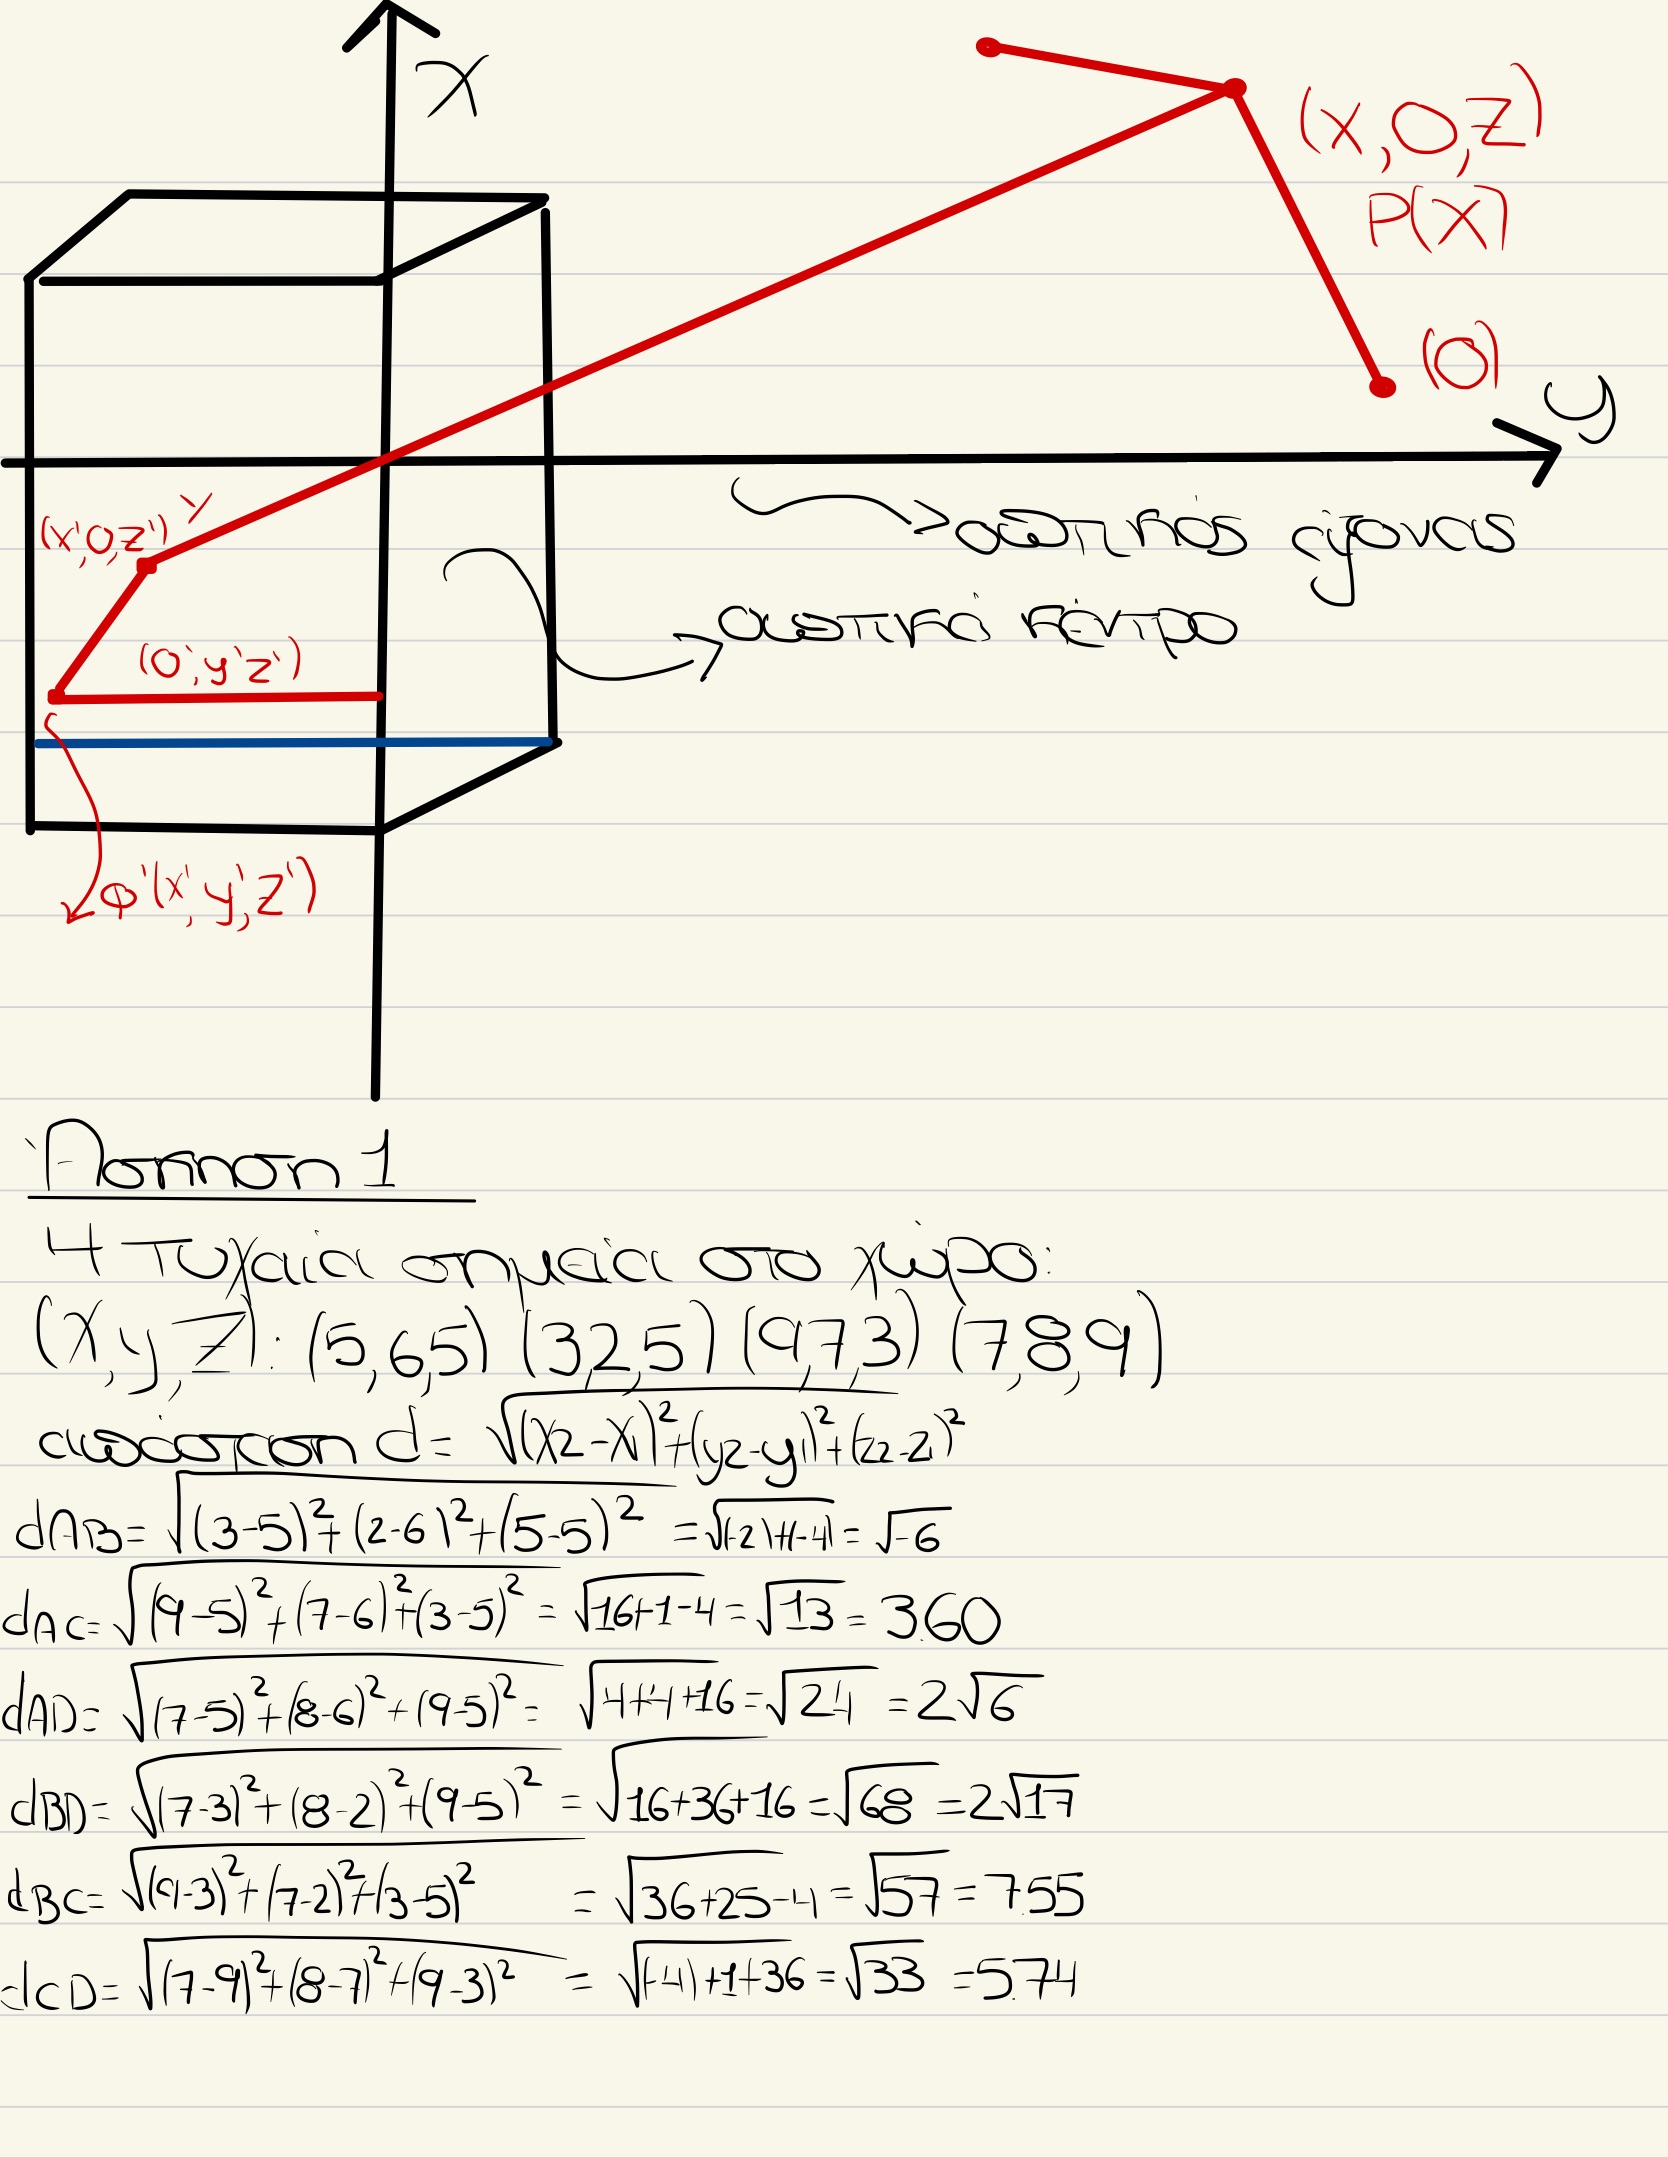 X
(x,0,z)
P(X)
(0)
y
(x',0,z') y
οπτικός άξονας
οπτικό κέντρο
(0',y'z')
φ'(x',y',z')
Άσκηση 1
4 τυχαία σημεία στο χώρο:
(x,y,z): (5,6,5) (3,2,5) (9,7,3) (7,8,9)
απόσταση d= √(x2-x1)²+(y2-y1)²+(z2-z1)²
dAB= √(3-5)²+(2-6)²+(5-5)² =√(-2)+(-4) = √-6
dAC= √(9-5)²+(7-6)²+(3-5)² = √16+1-4 = √13 = 3.60
dAD= √(7-5)²+(8-6)²+(9-5)² = √4+4+16 = √24 = 2√6
dBD= √(7-3)²+(8-2)²+(9-5)² = √16+36+16 = √68 = 2√17
dBC= √(9-3)²+(7-2)²+(3-5)² = √36+25-4 = √57 = 7.55
dCD= √(7-9)²+(8-7)²+(9-3)² = √(-4)+1+36 = √33 = 5.74